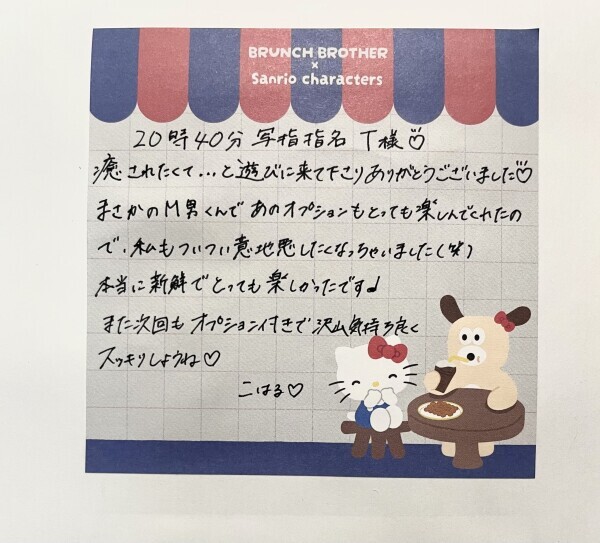 BRUNCH BROTHER
×
Sanrio characters
20時40分 写指指名 T様♡
癒されたくて...と遊びに来て下さりありがとうございました♡
まさかのM男くんであのオプションもとっても楽しんでくれたの
で、私もついつい意地悪したくなっちゃいました(笑)
本当に新鮮でとっても楽しかったです♩
また次回もオプション付きで沢山気持ち良く
スッキリしようね♡
こはる♡